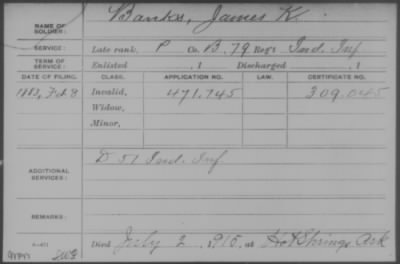 NAME OF SOLDIER: Banks, James K.
SERVICE: Late rank, P Co. B, 79 Reg't Ind. Inf
TERM OF SERVICE: Enlisted , 1 Discharged , 1
DATE OF FILING. CLASS. APPLICATION NO. LAW. CERTIFICATE NO.
1883, Feb 8 Invalid, 471.745 309.045
Widow,
Minor,
ADDITIONAL SERVICES: D 51 Ind. Inf
REMARKS:
Died July 2, 1915, at Hot Springs Ark